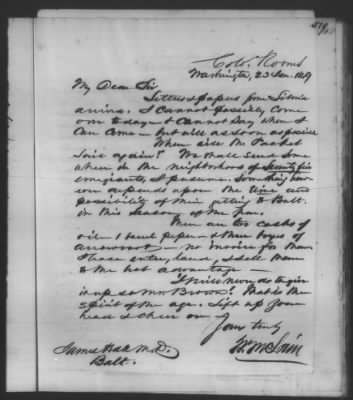 Col. Rooms
Washington, 23 Jan. 1849
My Dear Sir
Letters & papers from Liberia
arrive. I cannot possibly come
on today & cannot say when I
can come — but will as soon as possible
When will the Packet
sail again? We shall send some
where in the neighborhood of Seventy five
emigrants I presume. Something how-
ever depends upon the time and
possibility of their getting to Balt.
in this season of the year.
There are two casks of
oil - 1 barrel pepper - & three boxes of
arrowroot — no invoice for them
Please enter, land, & sell them
to the best advantage —
give
it up so Mr Brown? That is the
spirit of the age. Lift up your
head & cheer on —
Yours truly
W. McLain
James Hall M.D.
Balt.